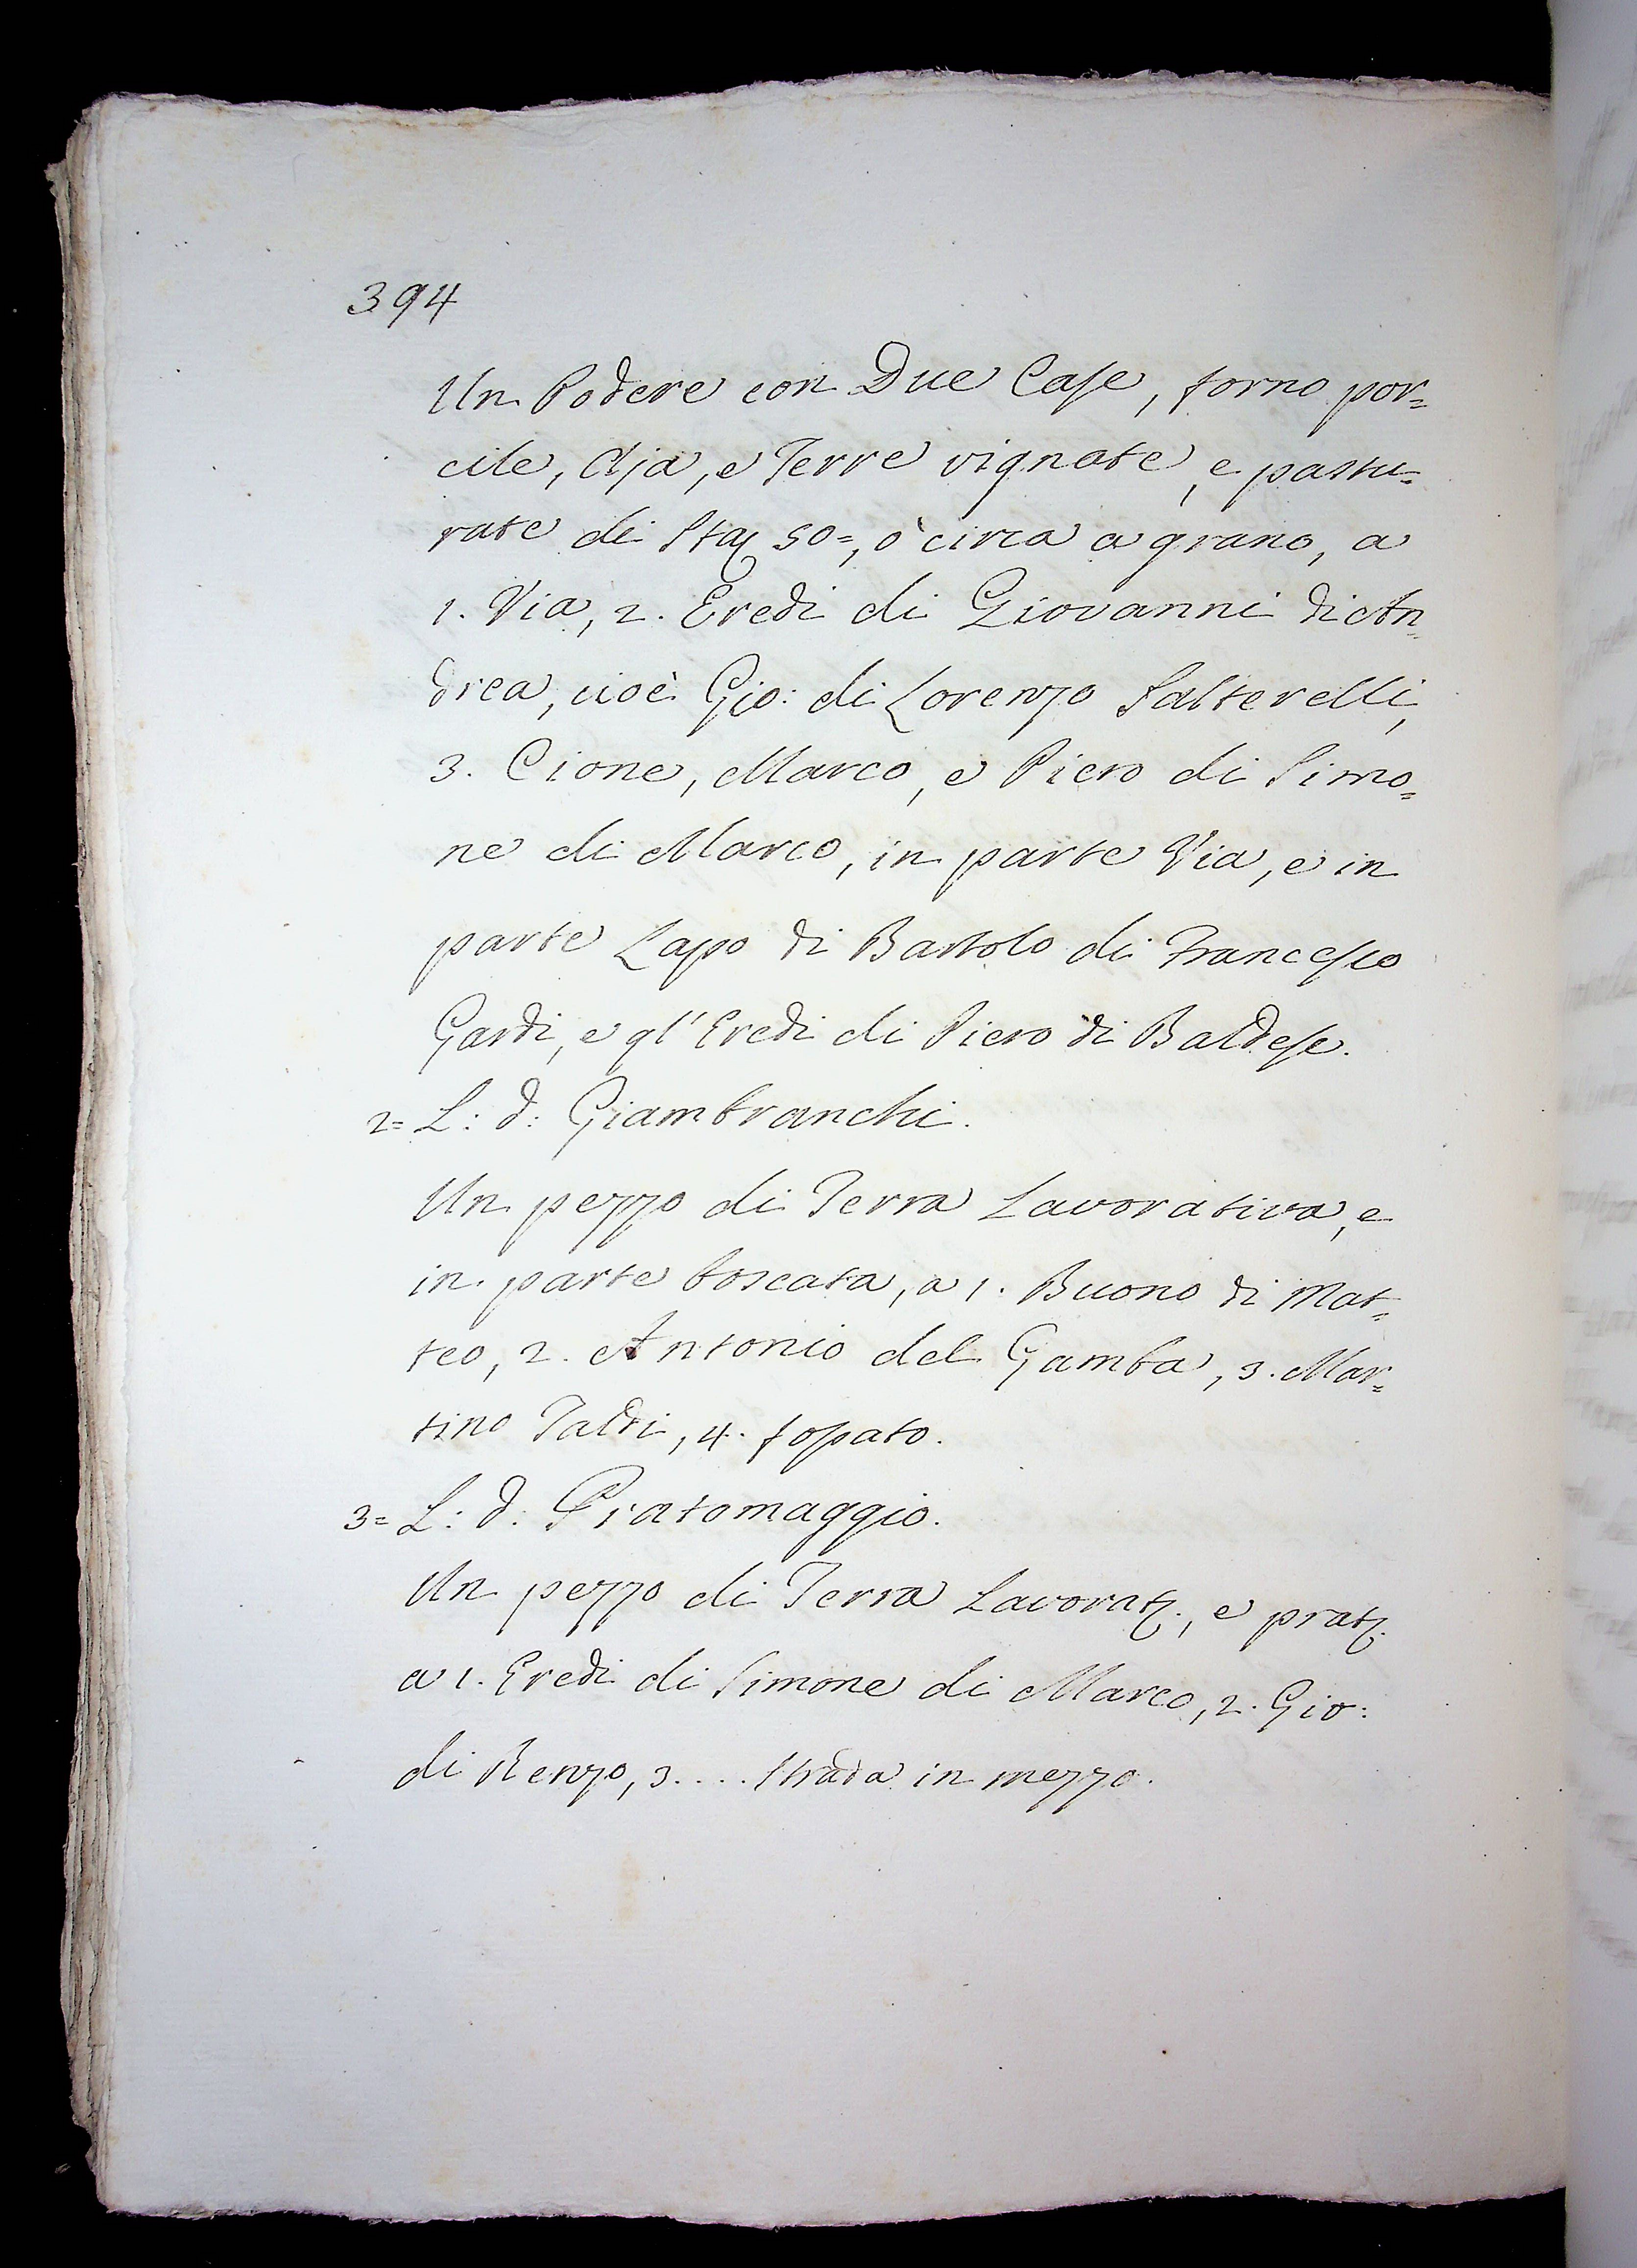 394
Un Podere con Due Case, forno por=
cile, Aja, e Terre vignate, e pastu=
rate di Sta. 50=, ò circa a grano, a
1. Via, 2. Eredi di Giovanni di An=
drea, cioè Gio: di Lorenzo Salterelli,
3. Cione, Marco, e Piero di Simo=
ne di Marco, in parte Via, e in
parte Lapo di Bartolo di Francesco
Gardi, e gl' Eredi di Piero di Baldese.
2= L: d: Giambranchi.
Un pezzo di Terra Lavorativa, e
in parte boscata, a 1. Buono di Mat=
teo, 2. Antonio del Gamba, 3. Mar=
tino Taldi, 4. fossato.
3= L: d: Pratomaggio.
Un pezzo di Terra Lavorat., e prat.
a 1. Eredi di Simone di Marco, 2. Gio:
di Renzo, 3.... strada in mezzo.